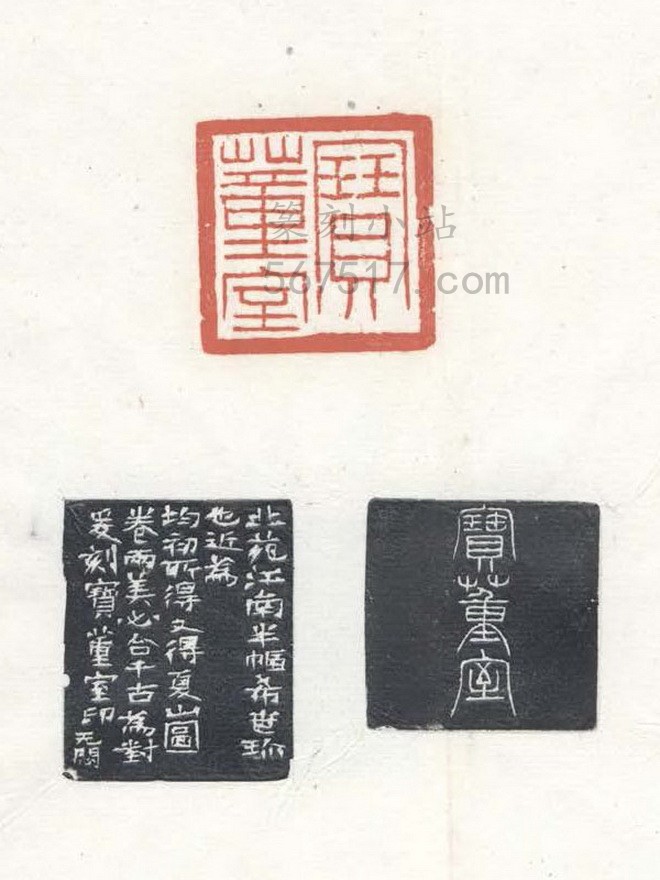 寶董室
篆刻小站
567517.com
北苑江南半幅希世珎
也近為
均初所得又得夏山圖
卷兩美必合千古為對
爰刻寶董室印无悶
寶董室